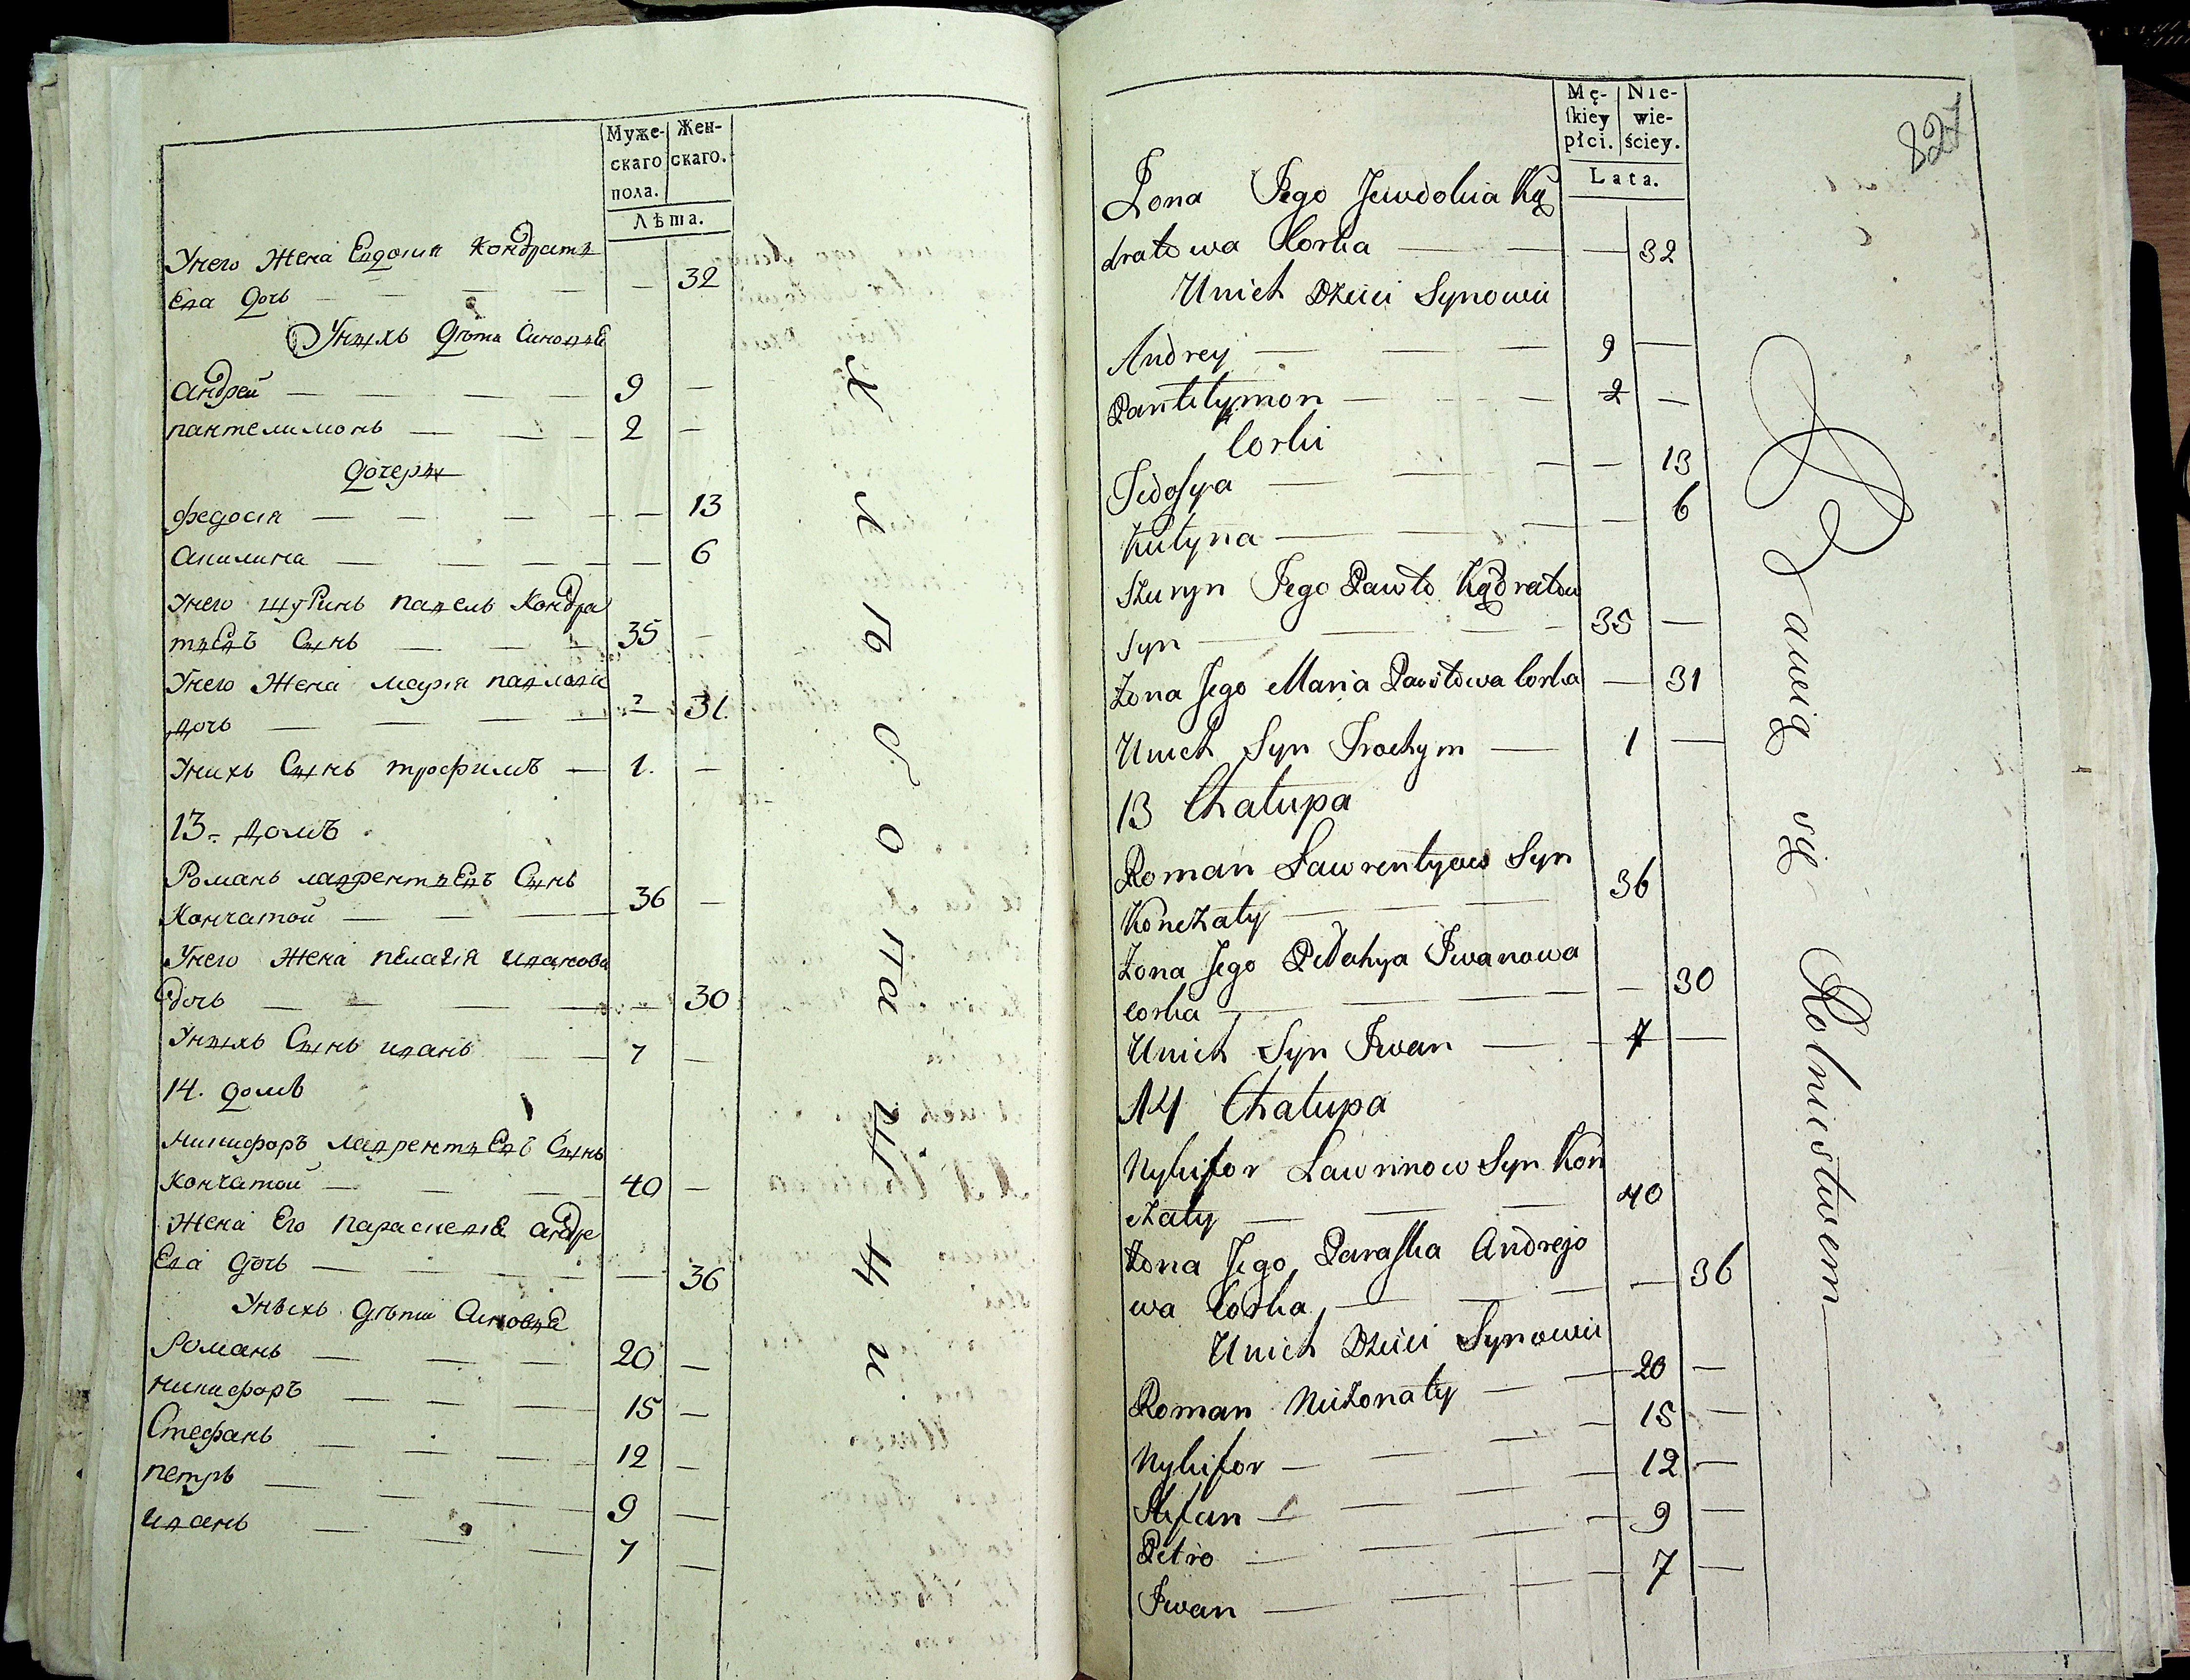 Муже-
скаго
пола.
Жен-
скаго.
Лѣта.
Унего Жена Евдокия Кондрать
Ева дочь — — — — 32
Унихъ Дѣти Синовья
Андрей — — — — 9 —
пантелимонь — — — 2 —
дочери
федосія — — — — — 13
Акилина — — — — — 6
Унего шуринь павель Кондра
тьевъ Сынь — — — 35 —
Унего Жена марія павлова
дочь — — — — — 31.
Унихь Сынь трофимъ — 1. —
13. домъ
Романь лаврентьевъ Сынь
Кончатой — — — 36 —
Унего Жена пелагія иванова
дочь — — — — — 30
Унихь Сынь ивань — — 7 —
14. домъ
Никифоръ лаврентьевъ Сынь
Кончатой — — — 40 —
Жена Его параскевія андре
Ева дочь — — — — — 36
Унихъ дѣти Синовья
Романь — — — 20 —
никифоръ — — — 15 —
Стефань — — — 12 —
петръ — — — 9 —
ивань — — — 7 —
Хлѣбопашци.
827
Mę-
ſkiey
płci.
Nie-
wie-
ściey.
Lata.
Żona Jego Jewdokia Ką
dratowa Corka — — — 32
Unich Dzieci Synowie
Andrey — — — 9 —
Pantelymon — — — 2 —
Corki
Fedoſya — — — — 13
Kulyna — — — — 6
Szuryn Jego Pawło Kądratow
Syn — — — — 35 —
Żona Jego Maria Pawłowa Corka — 31
Unich Syn Trochym — 1 —
13 Chałupa
Roman Lawrentyow Syn
Konczaty — — — 36
Żona Jego Pelahya Jwanowa
corka — — — — 30
Unich Syn Jwan — — 7 —
14 Chałupa
Nykifor Lawrinow Syn Kon
czaty — — — 40
Żona Jego Paraſka Andrejo
wa Corka — — — — 36
Unich Dzieci Synowie
Roman Nieżonaty — — 20 —
Nykifor — — — 15 —
Stefan — — — 12 —
Petro — — — 9 —
Jwan — — — 7 —
Bawią się Rolnictwem —